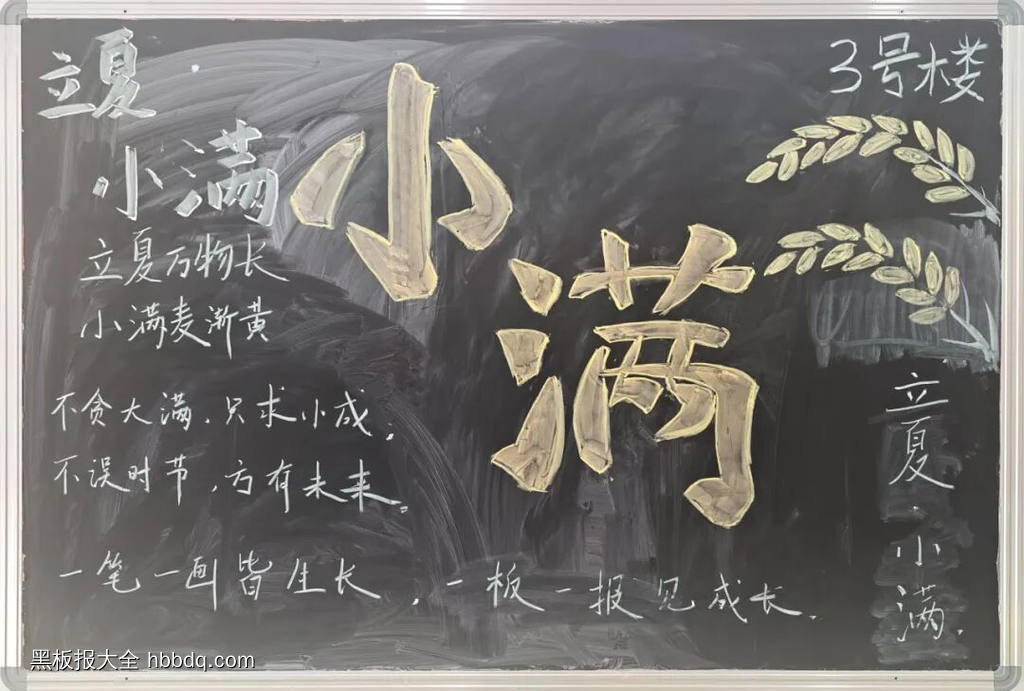 立夏
小满
3号楼
小满
立夏万物长
小满麦渐黄
不贪大满,只求小成。
不误时节,方有未来。
一笔一画皆生长,一板一报见成长.
立夏·小满.
黑板报大全 hbbdq.com